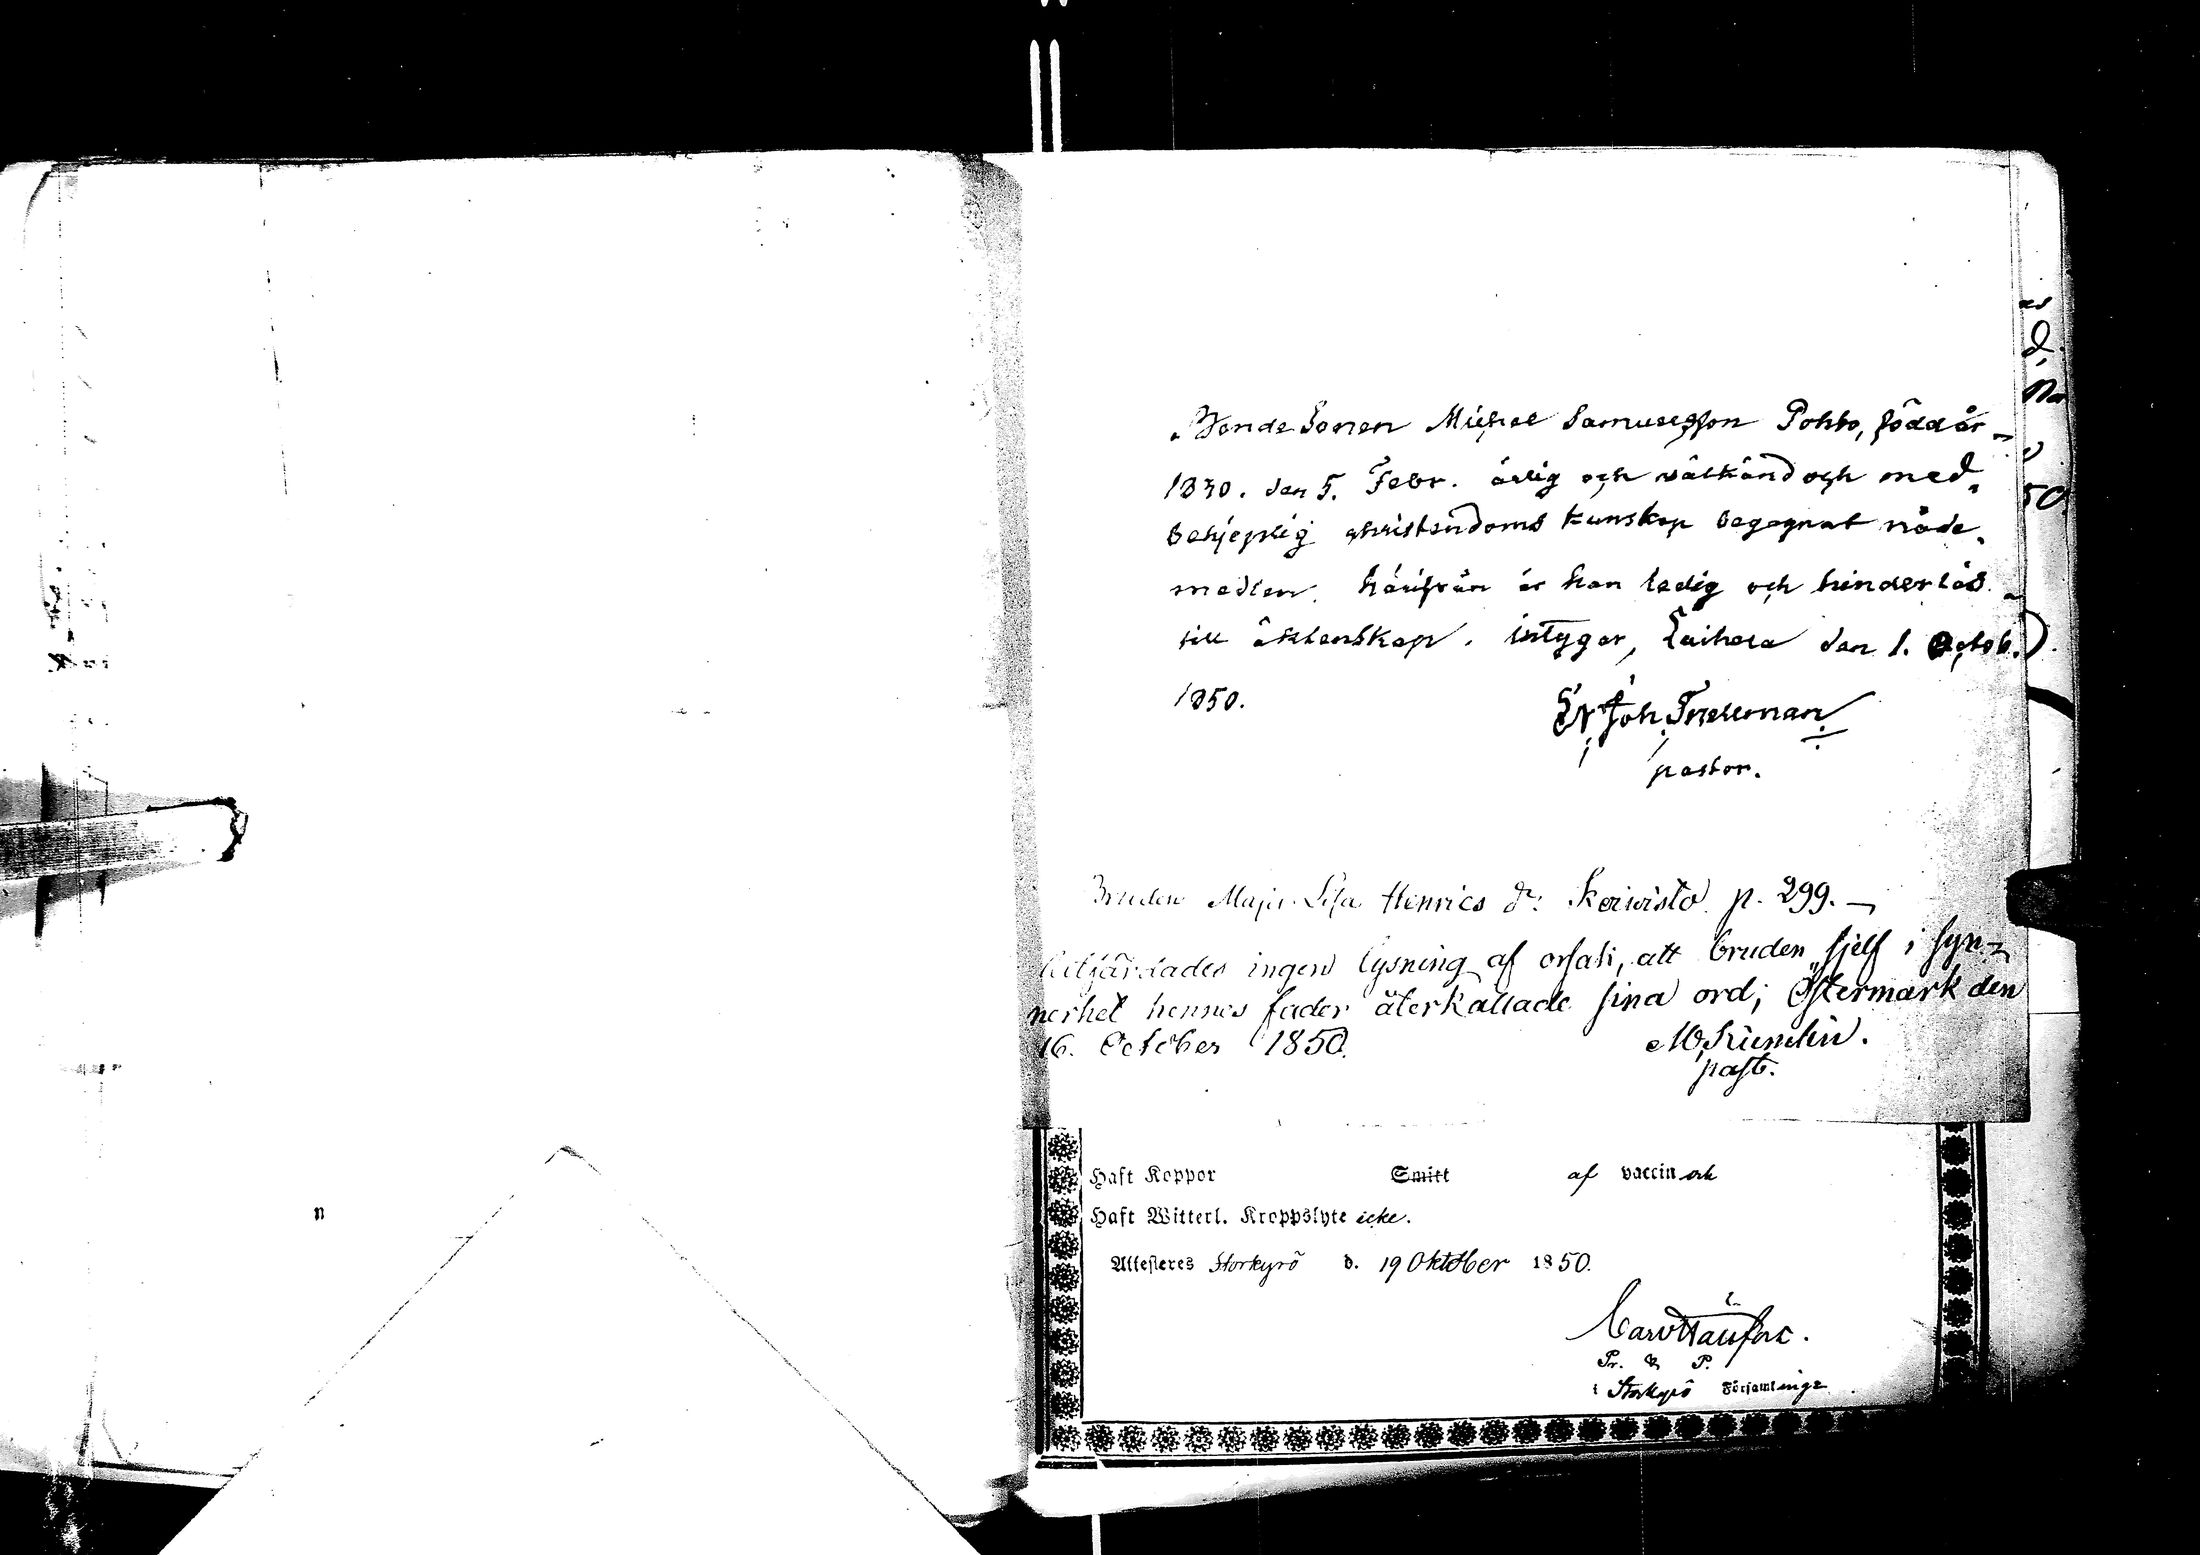 Bonde Sonen Michel Samuelsson Pohto, född år
1830. den 5. Febr. ärlig och välkänd och med
behjeplig christendoms kunskap begagnat nåde-
medlen. härifrån är han ledig och hinderlös
till äktenskap. intygar, Laihela den 1. Octob.
1850.
Joh. Snellman
pastor.
Bruden Maja Lisa Henrics dr: Koivisto p. 299.
utfärdades ingen lysning af orsak, att bruden sjelf i syn-
nerhet hennes fader återkallade sina ord; Östermark den
16. October 1850.
past.
Haft Koppor Smitt af vaccin och
Haft Witterl. Kroppslyte icke.
Attesteres Storkyrö d. 19 Oktober 1850.
Pr. & P.
i Storkyrö Församlinge
n
50.